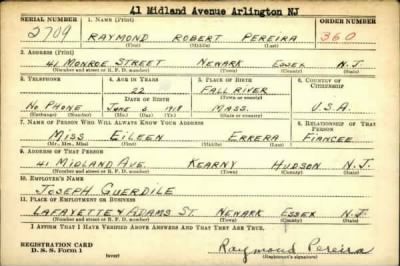 41 Midland Avenue Arlington NJ
SERIAL NUMBER 1. NAME (Print) ORDER NUMBER
2709 RAYMOND ROBERT PEREIRA 360
(First) (Middle) (Last)
3. ADDRESS (Print)
41 MONROE STREET NEWARK ESSEX N.J.
(Number and street or R. F. D. number) (Town) (County) (State)
4. TELEPHONE 5. AGE IN YEARS 6. PLACE OF BIRTH 6. COUNTRY OF CITIZENSHIP
22 FALL RIVER
DATE OF BIRTH (Town or county)
NO PHONE JUNE 1918 MASS. U.S.A.
(Exchange) (Number) (Mo.) (Day) (Yr.) (State or country)
7. NAME OF PERSON WHO WILL ALWAYS KNOW YOUR ADDRESS 8. RELATIONSHIP OF THAT PERSON
MISS EILEEN ERRERA FIANCEE
(Mr., Mrs., Miss) (First) (Middle) (Last)
9. ADDRESS OF THAT PERSON
41 MIDLAND AVE. KEARNY HUDSON N.J.
(Number and street or R. F. D. number) (Town) (County) (State)
10. EMPLOYER'S NAME
JOSEPH GUERDILE
11. PLACE OF EMPLOYMENT OR BUSINESS
LAFAYETTE & ADAMS ST. NEWARK ESSEX N.J.
(Number and street or R. F. D. number) (Town) (County) (State)
I AFFIRM THAT I HAVE VERIFIED ABOVE ANSWERS AND THAT THEY ARE TRUE.
REGISTRATION CARD
D. S. S. Form 1 (over) Raymond Pereira
(Registrant's signature)